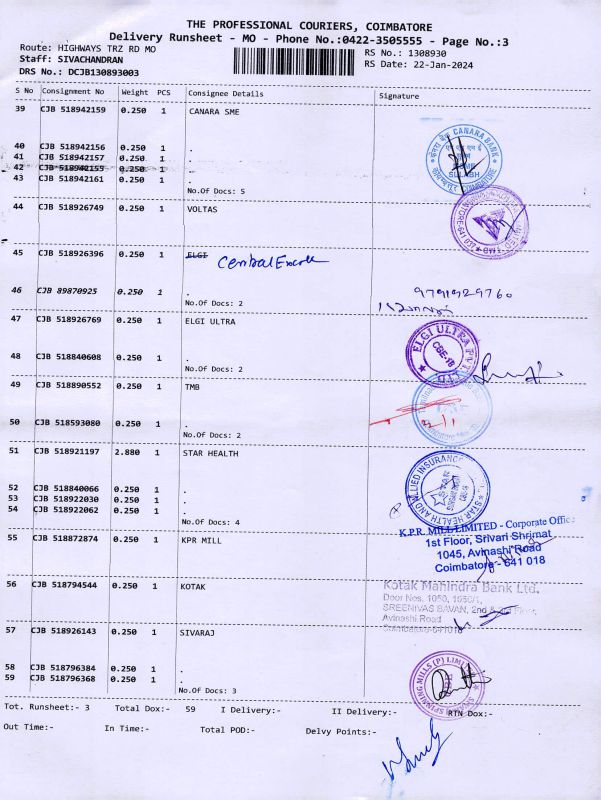 THE PROFESSIONAL COURIERS, COIMBATORE
Delivery Runsheet - MO - Phone No.:0422-3505555 - Page No.:3
Route: HIGHWAYS TRZ RD MO
RS No.: 1308930
Staff: SIVACHANDRAN
RS Date: 22-Jan-2024
DRS No.: DCJB130893003
S No Consignment No Weight PCS Consignee Details Signature
39 CJB 518942159 0.250 1 CANARA SME
CANARA BANK
COIMBATORE
40 CJB 518942156 0.250 1 .
41 CJB 518942157 0.250 1 .
42 CJB 518942155 0.250 1 .
43 CJB 518942161 0.250 1 .
No.Of Docs: 5
44 CJB 518926749 0.250 1 VOLTAS
45 CJB 518926396 0.250 1 ELGI
46 CJB 89870925 0.250 1 .
No.Of Docs: 2
47 CJB 518926769 0.250 1 ELGI ULTRA
ELGI ULTRA PVT LTD
CBE-18
48 CJB 518840608 0.250 1 .
No.Of Docs: 2
49 CJB 518890552 0.250 1 TMB
50 CJB 518593080 0.250 1 .
No.Of Docs: 2
51 CJB 518921197 2.880 1 STAR HEALTH
STAR HEALTH AND ALLIED INSURANCE
52 CJB 518840066 0.250 1 .
53 CJB 518922030 0.250 1 .
54 CJB 518922062 0.250 1 .
No.Of Docs: 4
55 CJB 518872874 0.250 1 KPR MILL
K.P.R. MILL LIMITED - Corporate Office
1st Floor, Srivari Shrimat
1045, Avinashi Road
Coimbatore - 641 018
56 CJB 518794544 0.250 1 KOTAK
Kotak Mahindra Bank Ltd.
Door Nos. 1050, 1050/1,
SREENIVAS BAVAN, 2nd & 3rd Floor,
Avinashi Road
Coimbatore-641018
57 CJB 518926143 0.250 1 SIVARAJ
SPINNING MILLS (P) LIMITED
58 CJB 518796384 0.250 1 .
59 CJB 518796368 0.250 1 .
No.Of Docs: 3
Tot. Runsheet:- 3 Total Dox:- 59 I Delivery:- II Delivery:- RTN Dox:-
Out Time:- In Time:- Total POD:- Delvy Points:-